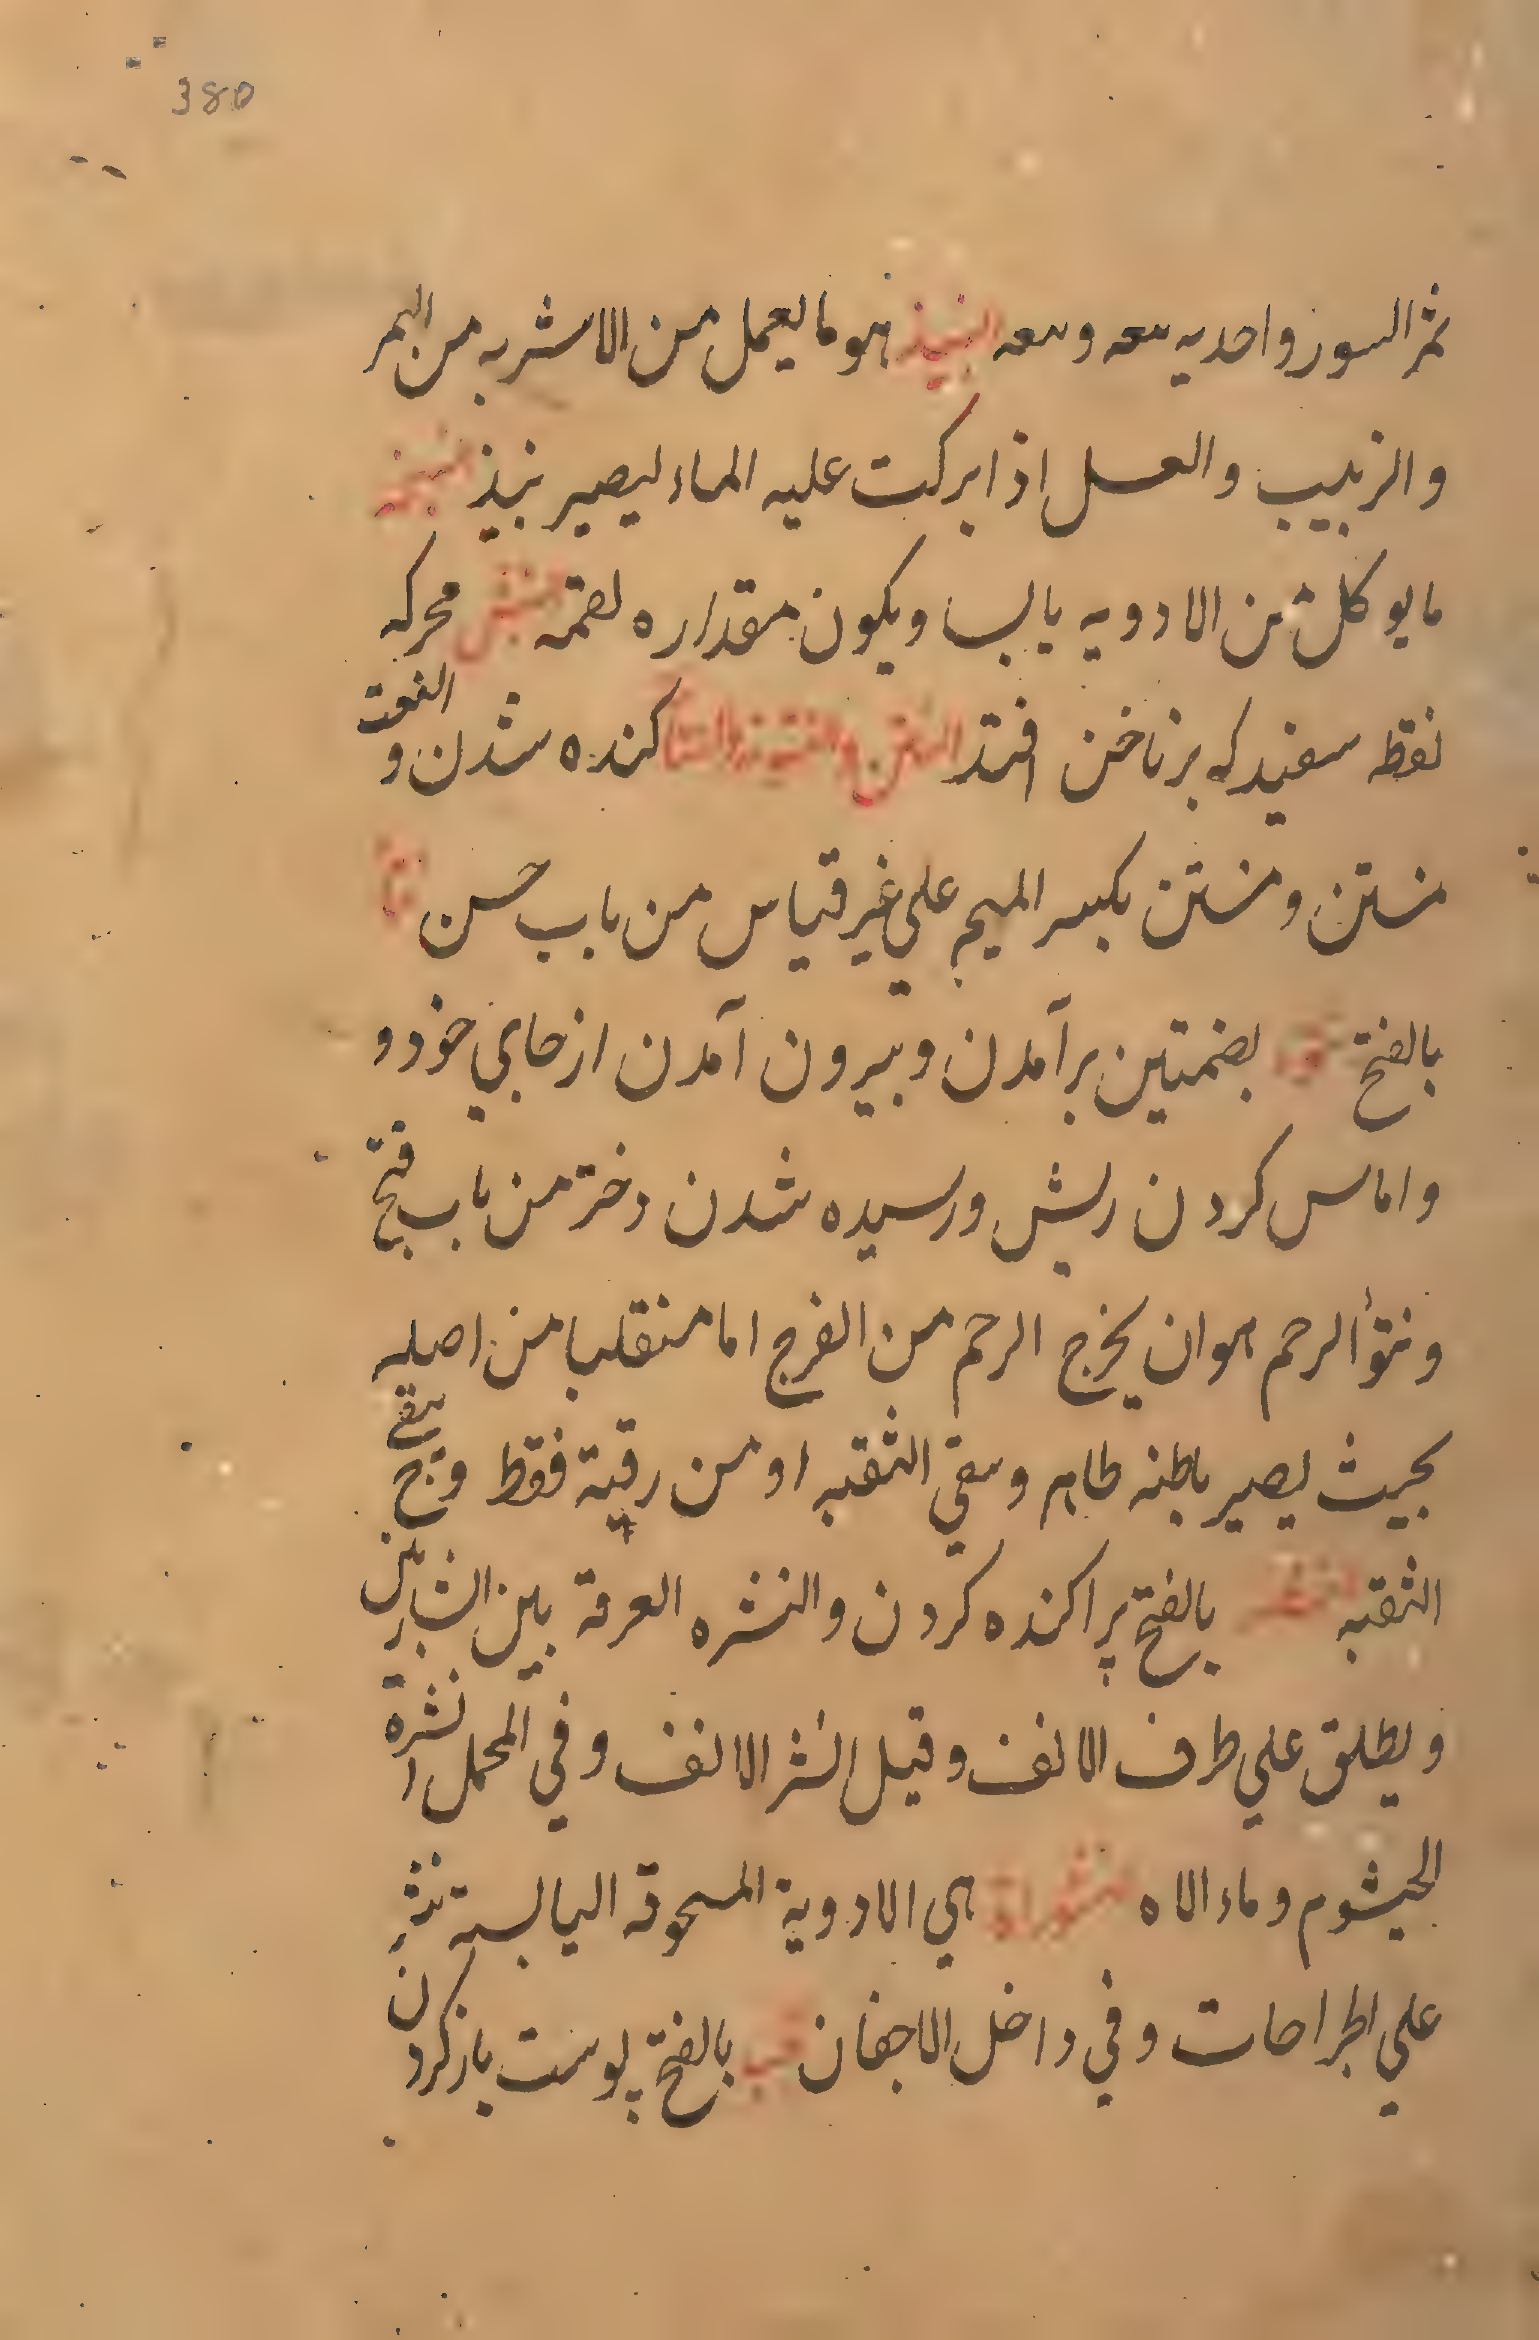 380
ثمر السور واحديه سعه وسعه النبيذ هو ما يعمل من الاشربه من التمر
والزبيب والعسل اذا بركت عليه الماء ليصير نبيذ
ما يوكل من الادويه يابسا ويكون مقداره لقمه محركه
نقطه سفيد كه برناخن افتد النتن كنده شدن و النعت
منتن ومنتن بكسر الميم علي غير قياس من باب حسن
بالفتح بضمتين برآمدن وبيرون آمدن از جاي خود و
واماس كردن ريش ورسيده شدن دختر من باب فتح
ونتوأ الرحم هو ان يخرج الرحم من الفرج اما منقلبا من اصله
بحيث يصير باطنه ظاهر وسقي الثقبه او من رقبة فقط وتج سقي
الثقبه بالفتح پراكنده كردن والنثره العرفة بين الشاربين
ويطلق علي طرف الانف وقيل النثر الانف وفي المحمل النثرة
الخيشوم وماء الاه منثورات هي الادوية المسحوقه اليابسة تنثر
علي الجراحات وفي داخل الاجفان بالفتح پوست باز كردن